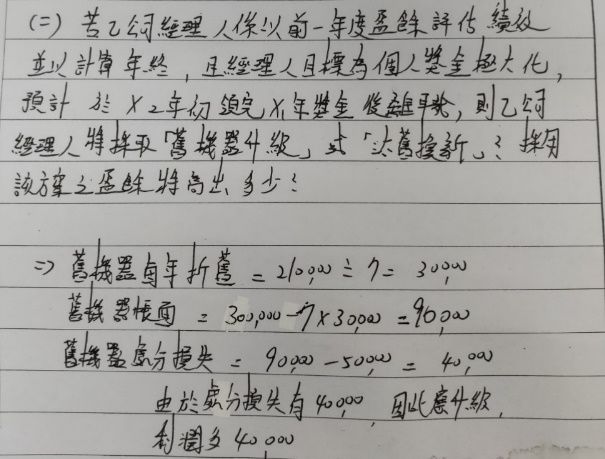 (二) 若乙公司經理人係以前一年度盈餘評估績效
並以計算年終，且經理人目標為個人獎金極大化，
預計於X2年初領完X1年獎金後離職，則乙公司
經理人將採取「舊機器升級」或「汰舊換新」？採用
該方案之盈餘將高出多少？
=> 舊機器每年折舊 = 210,000 ÷ 7 = 30,000
舊機器帳面 = 300,000 - 7 × 30,000 = 90,000
舊機器處分損失 = 90,000 - 50,000 = 40,000
由於處分損失有40,000，因此應升級，
利潤多40,000